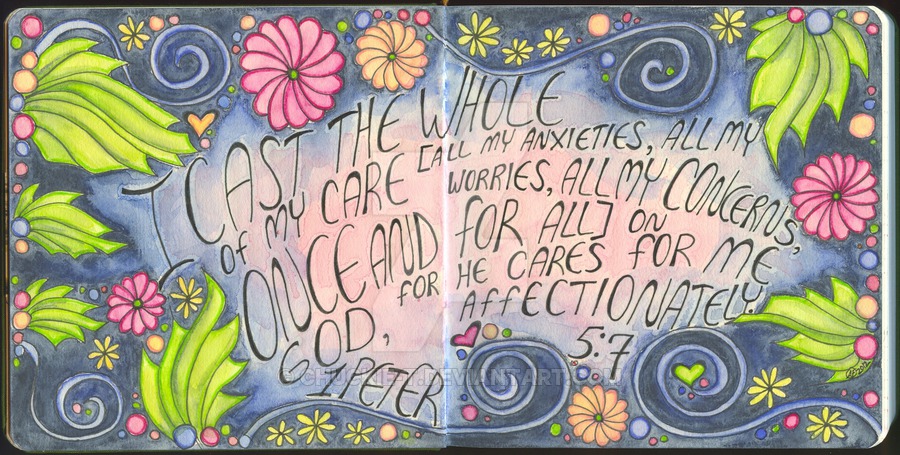 I CAST THE WHOLE
OF MY CARE [ALL MY ANXIETIES, ALL MY
WORRIES, ALL MY CONCERNS,
ONCE AND FOR ALL] ON
GOD, FOR HE CARES FOR ME
AFFECTIONATELY.
1 PETER 5:7